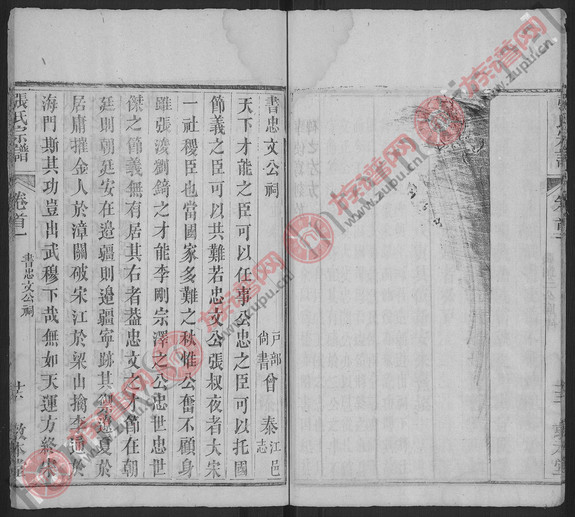 書忠文公祠
戸部尙書曾 泰 江邑志
天下才能之臣可以任事公忠之臣可以托國
節義之臣可以共難若忠文公張叔夜者大宋
一社稷臣也當國家多難之秋惟公奮不顧身
雖張浚劉錡之才能李剛宗澤之公忠世忠世
傑之節義無有居其右者蓋忠文之才節在朝
廷則朝廷安在邉疆則邉疆寧跡其禦遼夏於
居庸摧金人於漳關破宋江於梁山擒李通於
海門斯其功豈出武穆下哉無如天運方終宋
張氏宗譜
卷首一
書忠文公祠
廿
敦本堂
族谱网
www.zupu.cn
族谱网
www.zupu.cn